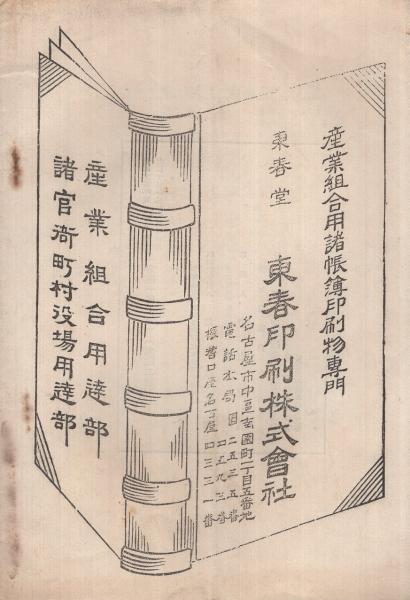 産業組合用諸帳簿印刷物専門
東春堂
東春印刷株式會社
名古屋市中区
町一丁目五番地
電話本局
二五三五番
四五九三番
振替口座名古屋四三三一番
産業組合用達部
諸官衙町村役場用達部